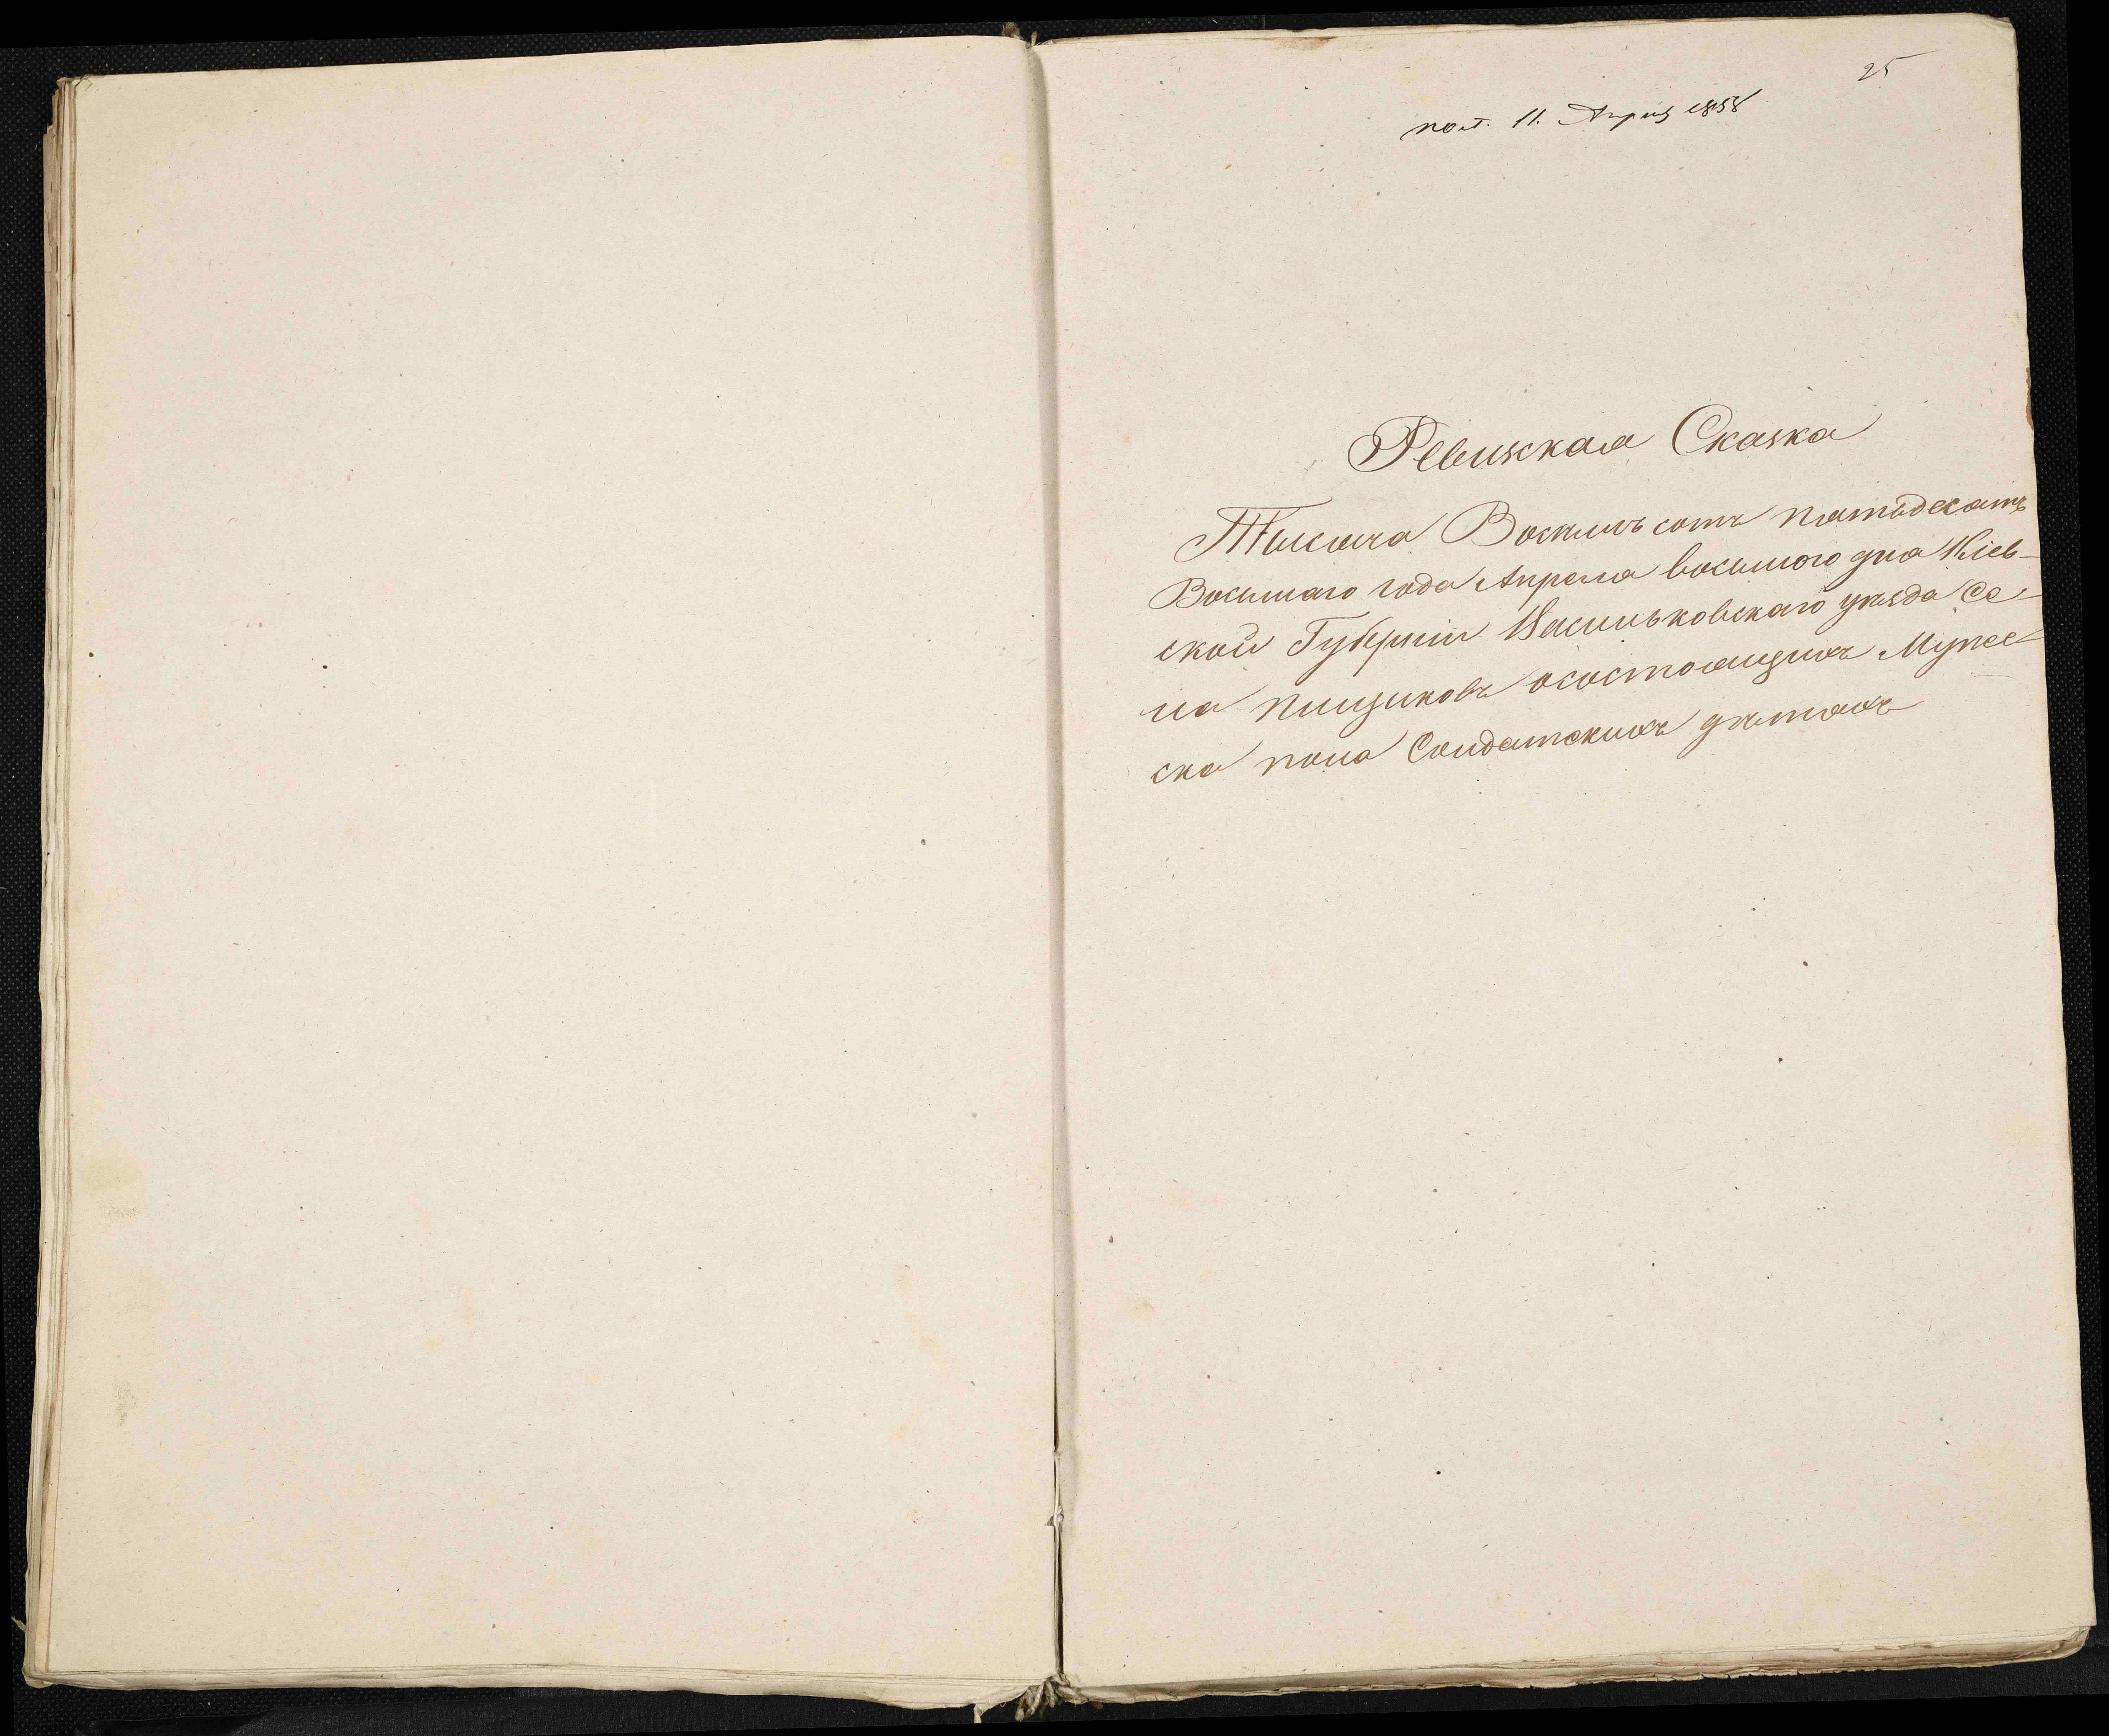 25
пол. 11. Апрѣля 1858
Ревизская Сказка
Тысяча Восѣмъ сотъ пятьдесятъ
Восьмаго года Апреля восьмого дня Кіев-
ской Губерніи Васильковскаго уѣзда Се-
ла Пищиковъ осостоящихъ Мужес
ска пола Солдатскихъ дѣтяхъ